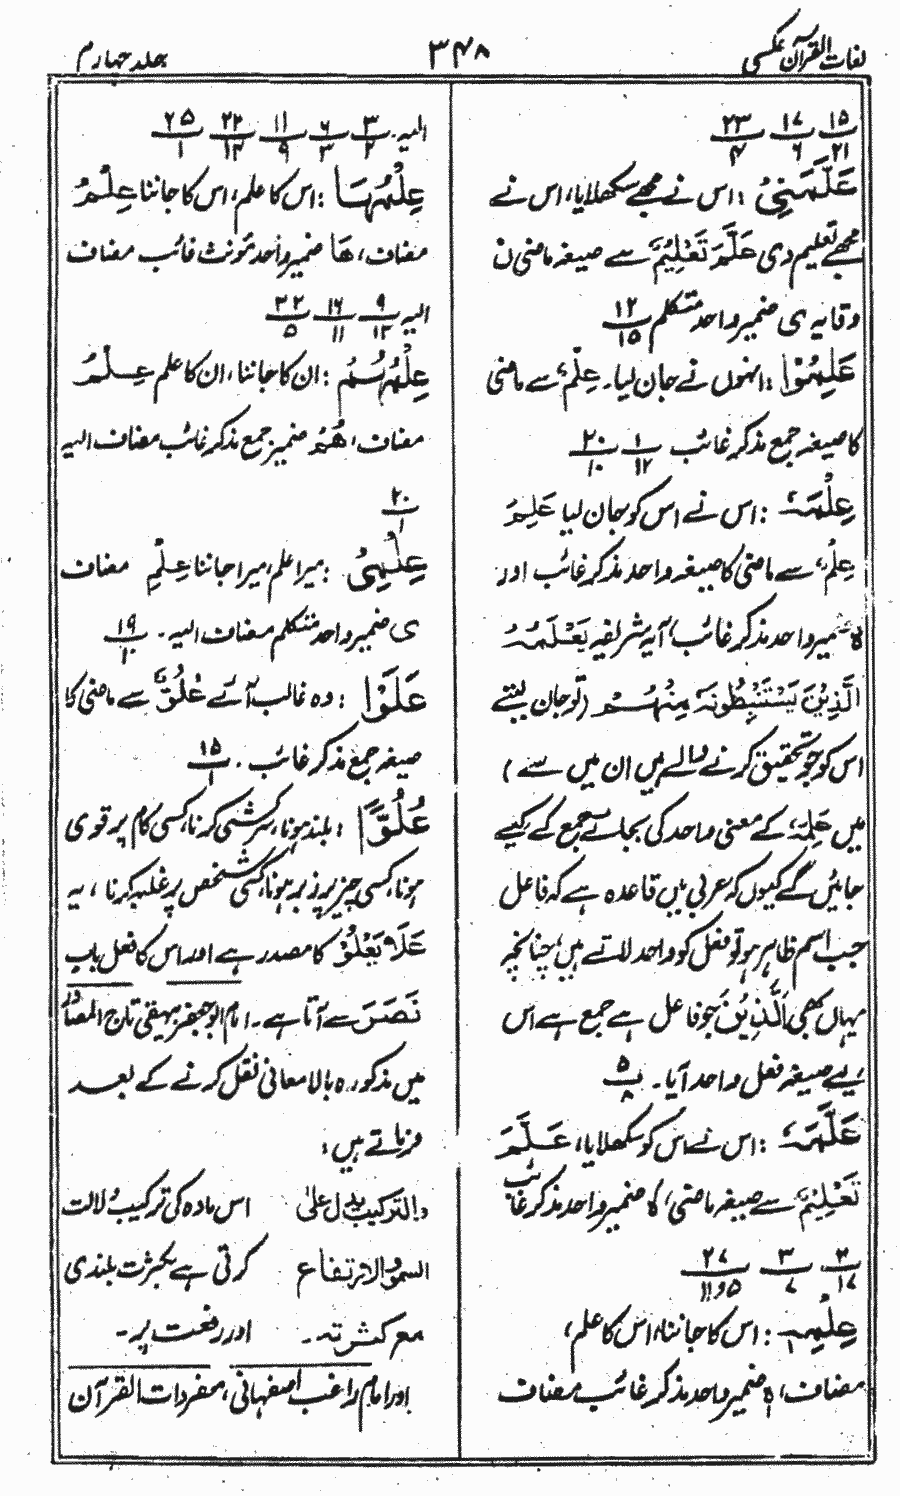 لغات القرآن عکسی
۳۴۸
جلد چہارم
۱۵ ۱۷ ۲۳
۲۱ ۶ ۴
عَلَّمَنِیْ : اس نے مجھے سکھلایا، اس نے
مجھے تعلیم دی عَلَّمَ تَعْلِیْمٌ سے صیغہ ماضی ن
وقایہ ی ضمیر واحد متکلم ۱۲
۱۵
عَلِمُوْا : انہوں نے جان لیا۔ عِلْمٌ سے ماضی
کا صیغہ جمع مذکر غائب ۱ ۲۰
۱۲ ۱۰
عَلِمَہٗ : اس نے اس کو جان لیا عَلِمَ
عِلْمٌ سے ماضی کا صیغہ واحد مذکر غائب اور
ہٗ ضمیر واحد مذکر غائب، آیہ شریفہ یَعْلَمُہُ
الَّذِیْنَ یَسْتَنْبِطُوْنَہٗ مِنْہُمْ (تو جان لیتے
اس کو جو تحقیق کرنے والے ہیں ان میں سے )
میں عَلِمَہٗ کے معنی واحد کی بجائے جمع کے کیے
جائیں گے کیوں کہ عربی میں قاعدہ ہے کہ فاعل
جب اسم ظاہر ہو تو فعل کو واحد لاتے ہیں، چنانچہ
یہاں بھی الَّذِیْنَ جو فاعل ہے جمع ہے اس
لیے صیغہ فعل واحد آیا۔ ۵
۸
عَلَّمَہٗ : اس نے اس کو سکھلایا، عَلَّمَ
تَعْلِیْمٌ سے صیغہ ماضی، ہٗ ضمیر واحد مذکر غائب
۳ ۳ ۲۷
۱۷ ۷ ۵و۱۱
عِلْمِہٖ : اس کا جاننا، اس کا علم،
مضاف، ہٖ ضمیر واحد مذکر غائب مضاف
الیہ۔ ۳ ۶ ۱۱ ۲۲ ۲۵
۲ ۳ ۹ ۱۳ ۱
عِلْمُہَا : اس کا علم، اس کا جاننا عِلْمُ
مضاف، ھَا ضمیر واحد مؤنث غائب مضاف
الیہ ۹ ۱۶ ۲۲
۱۲ ۱۱ ۵
عِلْمُہُمْ : ان کا جاننا، ان کا علم عِلْمُ
مضاف، ھُمْ ضمیر جمع مذکر غائب مضاف الیہ
۲۰
۱
عِلْمِیْ : میرا علم، میرا جاننا عِلْمِ مضاف
ی ضمیر واحد متکلم مضاف الیہ۔ ۱۹
۱۰
عَلَوْا : وہ غالب آئے عُلُوٌّ سے ماضی کا
صیغہ جمع مذکر غائب۔ ۱۵
۱
عُلُوًّا : بلند ہونا، سرکشی کرنا، کسی کام پر قوی
ہونا، کسی چیز پر زبر ہونا، کسی شخص پر غلبہ کرنا ، یہ
عَلَا یَعْلُوْ کا مصدر ہے اور اس کا فعل باب
نَصَرَ سے آتا ہے۔ امام ابو جعفر بیہقی تاج المصادر
میں مذکورہ بالا معانی نقل کرنے کے بعد
فرماتے ہیں :
والترکیب یدل علی اس مادہ کی ترکیب دلالت
السمو والارتفاع کرتی ہے بکثرت بلندی
مع کثرتہ۔ اور رفعت پر۔
اور امام راغب اصفہانی، مفردات القرآن